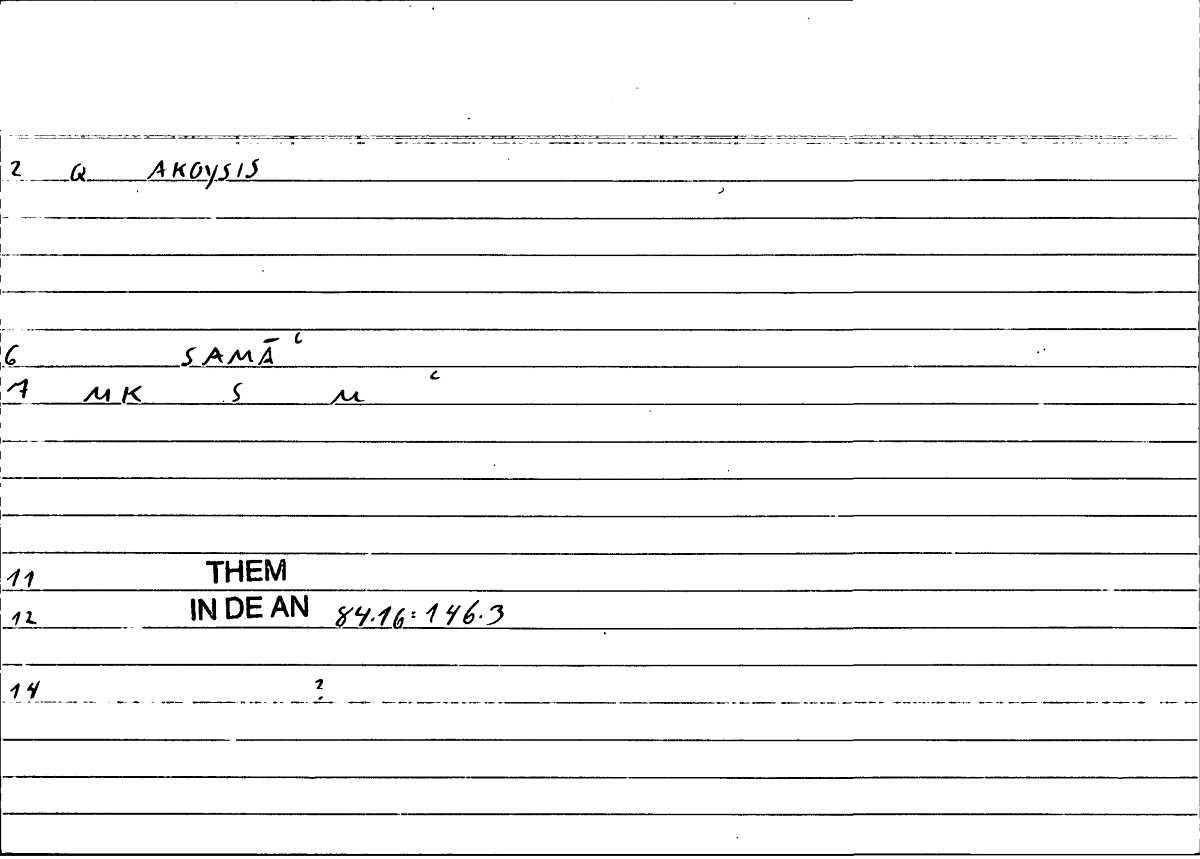 2 Q AKOYSIS
6 SAMĀʿ
7 MK S M ʿ
11 THEM
12 IN DE AN 84.16:146.3
14 ?